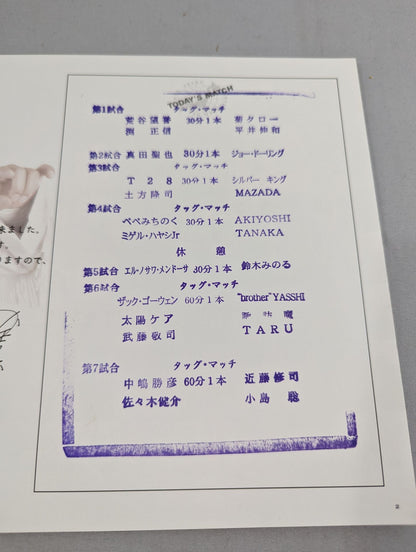 TODAY'S MATCH
第1試合 タッグ・マッチ
荒谷望誉 30分1本 菊タロー
渕 正信 平井伸和
第2試合 真田聖也 30分1本 ジョー・ドーリング
第3試合 タッグ・マッチ
T28 30分1本 シルバー キング
土方隆司 MAZADA
第4試合 タッグ・マッチ
ペペみちのく 30分1本 AKIYOSHI
ミゲル・ハヤシJr TANAKA
休 憩
第5試合 エル・ノサワ・メンドーサ 30分1本 鈴木みのる
第6試合 タッグ・マッチ
ザック・ゴーウェン 60分1本 "brother" YASSHI
太陽ケア
武藤敬司 TARU
第7試合 タッグ・マッチ
中嶋勝彦 60分1本 近藤修司
佐々木健介 小島 聡
来ました。
す。
りますので、
2